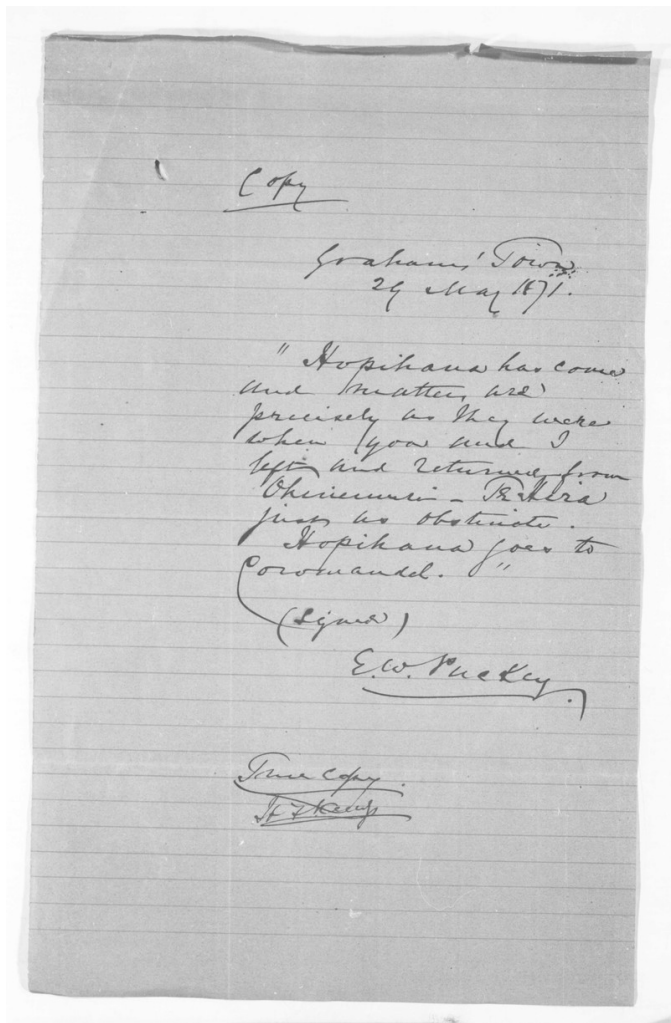 Copy
Grahams' Town
29 May 1871.
" Hopihana has come
and matters are
precisely as they were
when you and I
left and returned from
Ohinemuri - Te Hira
just as obstinate.
Hopihana goes to
Coromandel. "
(Signed)
E. W. Puckey.
True copy.